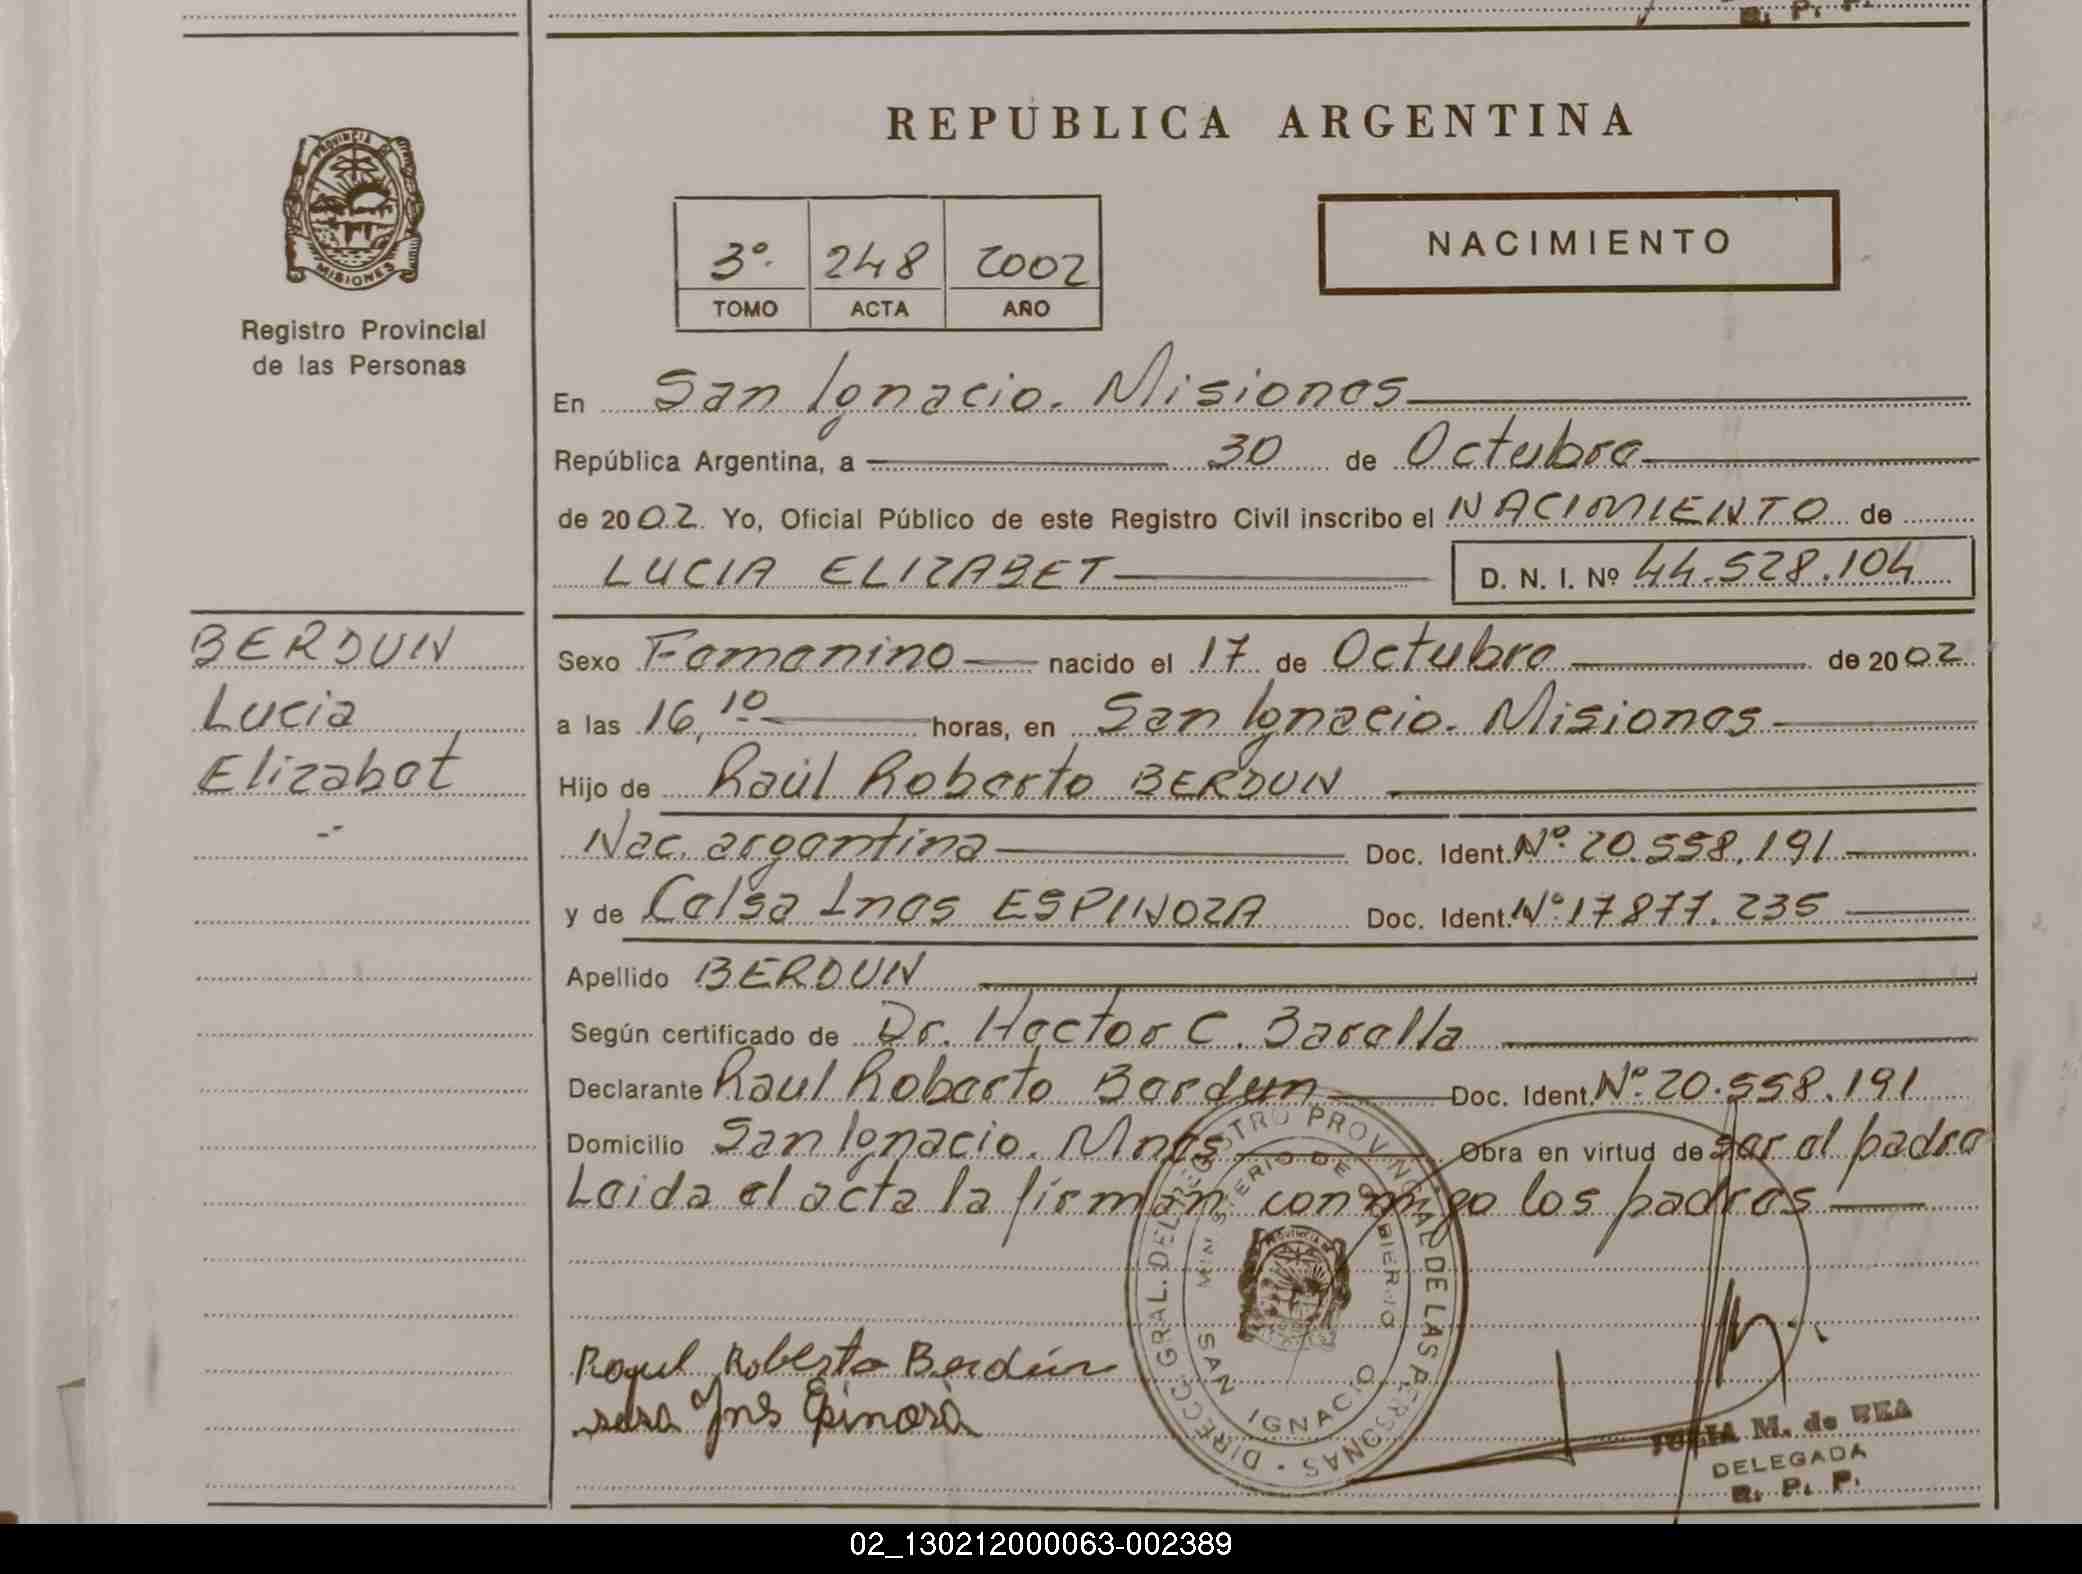 R. P. P.
REPUBLICA ARGENTINA
PROVINCIA DE
MISIONES
Registro Provincial
de las Personas
3º. 248 2002
TOMO ACTA AÑO
NACIMIENTO
En San Ignacio. Misiones
República Argentina, a 30 de Octubre
de 2002. Yo, Oficial Público de este Registro Civil inscribo el NACIMIENTO de
LUCIA ELIZABET D. N. I. Nº 44.528.104
BERDUN
Lucia
Elizabet
Sexo Femenino nacido el 17 de Octubre de 2002
a las 16,10 horas, en San Ignacio. Misiones
Hijo de Raúl Roberto BERDUN
Nac. argentina Doc. Ident. Nº. 20.558.191
y de Celsa Ines ESPINOZA Doc. Ident. Nº 17877.235
Apellido BERDUN
Según certificado de Dr. Hector C. Barella
Declarante Raul Roberto Berdun Doc. Ident. Nº. 20.558.191
Domicilio San Ignacio. Mnes Obra en virtud de ser el padre
Leida el acta la firman conmigo los padres
DIRECC. GRAL. DEL REGISTRO PROVINCIAL DE LAS PERSONAS
MINISTERIO DE GOBIERNO
SAN IGNACIO
Roberto Berdún
Ines
JULIA M. de BEA
DELEGADA
R. P. P.
02_130212000063-002389